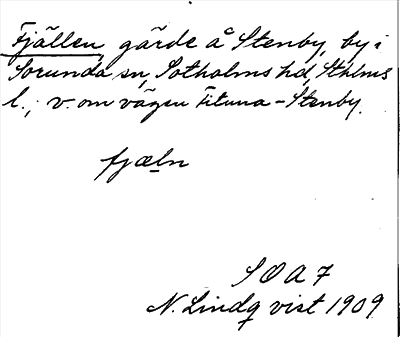 Fjällen, gärde å Stenby, by i
Sorunda sn, Sotholms hd, Sthlms
l.; v. om vägen Fituna-Stenby.
fjæln
S O A 7
N. Lindqvist 1909